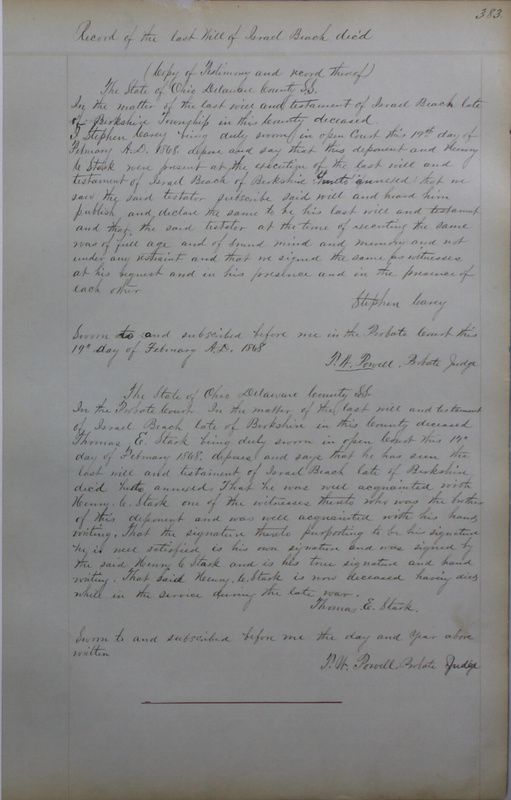 383.
Record of the last Will of Israel Beach dec'd
(Copy of Testimony and record thereof)
The State of Ohio Delaware County SS.
In the matter of the last will and testament of Israel Beach late
of Berkshire Township in this County deceased
I Stephen Carey being duly sworn in open Court this 19th day of
February A.D. 1868. depose and say that this deponent and Henry
C. Stark were present at the execution of the last will and
testament of Israel Beach of Berkshire hereto annexed: that we
saw the said testator subscribe said will and heard him
publish and declare the same to be his last will and testament
and that the said testator at the time of executing the same
was of full age and of sound mind and memory and not
under any restraint and that we signed the same as witnesses
at his request and in his presence and in the presence of
each other
Stephen Carey
Sworn to and subscribed before me in the Probate Court this
19th day of February A.D. 1868
T. W. Powell, Probate Judge
The State of Ohio Delaware County SS.
In the Probate Court. In the matter of the last will and testament
of Israel Beach late of Berkshire in this County deceased
Thomas E. Stark being duly sworn in open Court this 19th
day of February 1868. deposes and says that he has seen the
last will and testament of Israel Beach late of Berkshire
dec'd hereto annexed. That he was well acquainted with
Henry C. Stark one of the witnesses thereto who was the brother
of this deponent and was well acquainted with his hand
writing. That the signature thereto purporting to be his signature
he is well satisfied is his own signature and was signed by
the said Henry C Stark and is his true signature and hand
writing. That said Henry C. Stark is now deceased having died
while in the service during the late war.
Thomas E. Stark.
Sworn to and subscribed before me the day and Year above
written
T. W. Powell Probate Judge